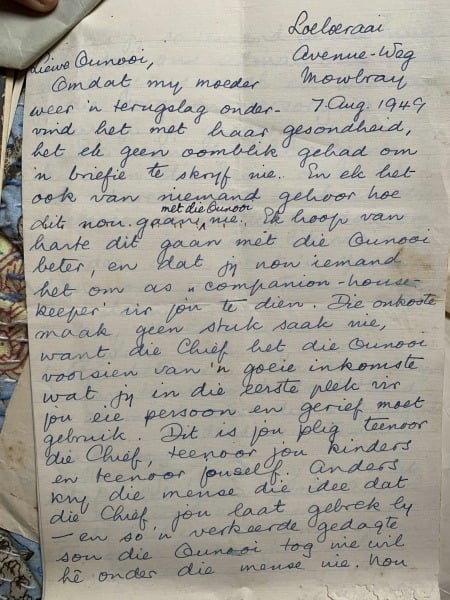 Loeloeraai
Avenue-Weg
Mowbray
7 Aug. 1949
Liewe Ounooi,
Omdat my moeder
weer 'n terugslag onder-
vind het met haar gesondheid,
het ek geen oomblik gehad om
'n briefie te skryf nie. En ek het
ook van niemand gehoor hoe
dit nou gaan met die Ounooi nie. Ek hoop van
harte dit gaan met die Ounooi
beter, en dat jy nou iemand
het om as 'n "companion-house-
keeper" vir jou te dien. Die onkoste
maak geen stuk saak nie,
want die Chief het die Ounooi
voorsien van 'n goeie inkomste
wat jy in die eerste plek vir
jou eie persoon en gerief moet
gebruik. Dit is jou plig teenoor
die Chief, teenoor jou kinders
en teenoor jouself. Anders
kry die mense die idee dat
die Chief jou laat gebrek ly
— en so 'n verkeerde gedagte
sou die Ounooi tog nie wil
hê onder die mense nie. Nou